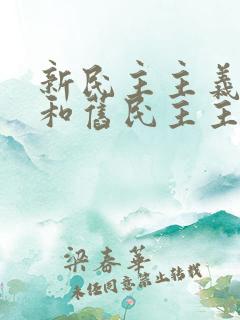 新民主主義
和舊民主主
梁春華
未经同意禁止转载